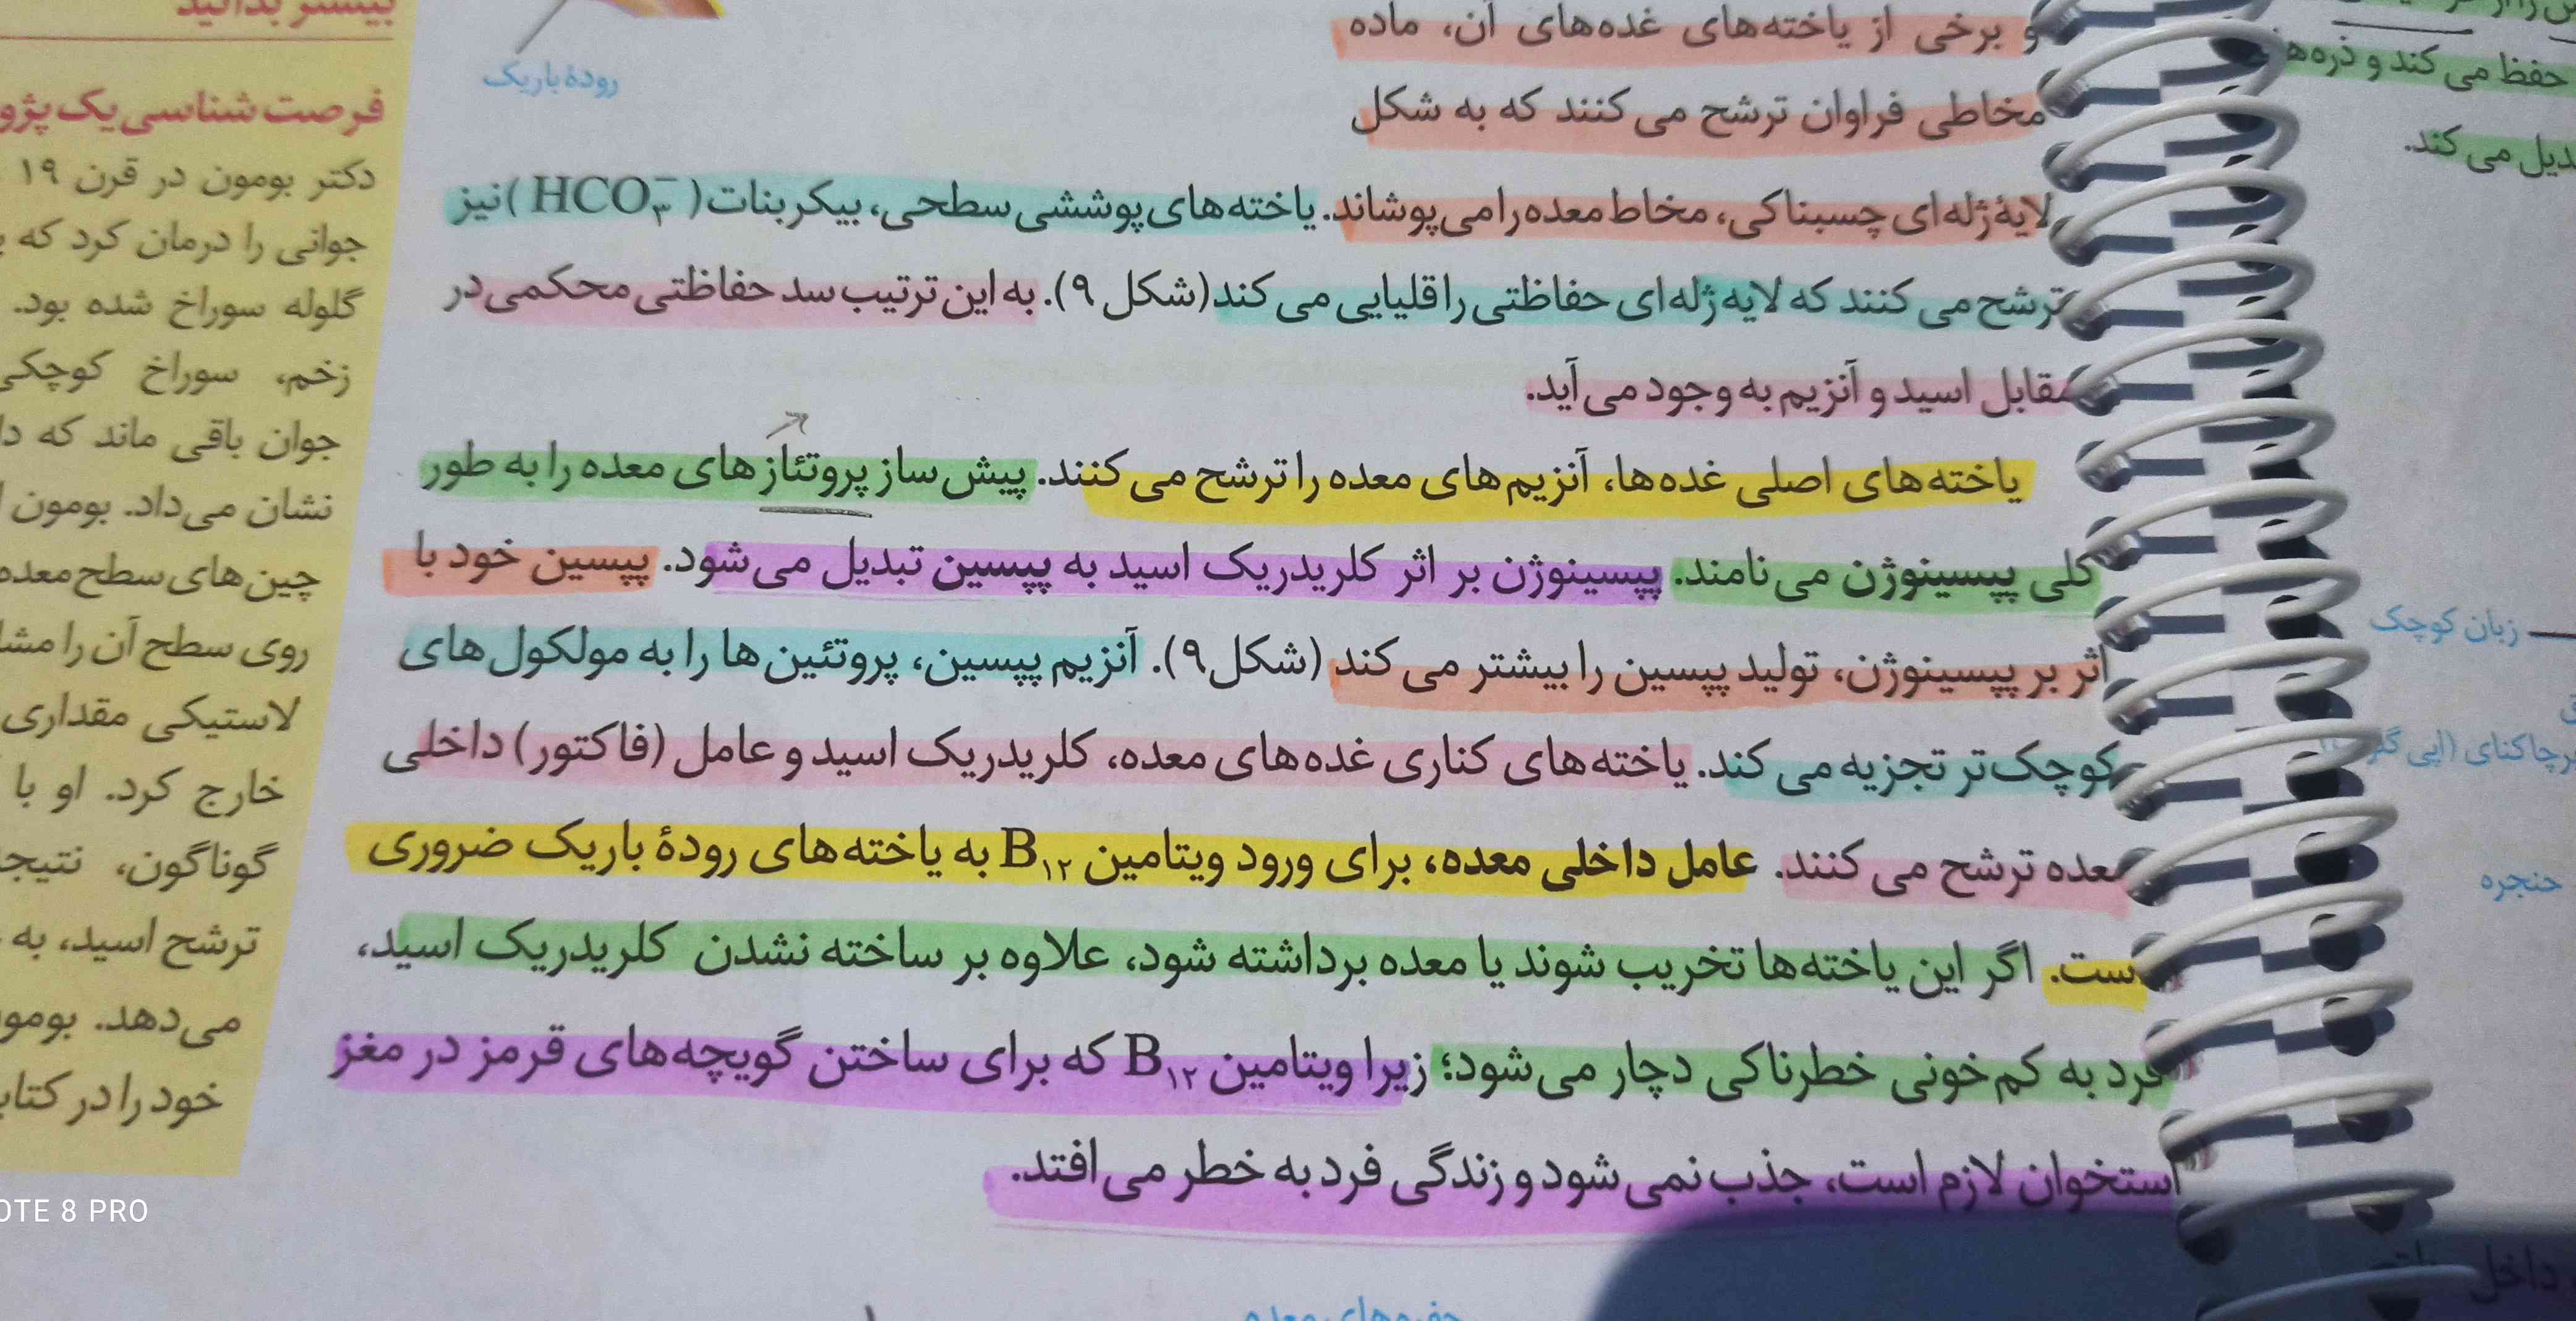 و برخی از یاخته‌های غده‌های آن، ماده
مخاطی فراوان ترشح می‌کنند که به شکل
لایهٔ ژله‌ای چسبناکی، مخاط معده را می‌پوشاند. یاخته‌های پوششی سطحی، بیکربنات (HCO₃⁻) نیز
ترشح می‌کنند که لایه ژله‌ای حفاظتی را قلیایی می‌کند (شکل ۹). به این ترتیب سد حفاظتی محکمی در
مقابل اسید و آنزیم به وجود می‌آید.
یاخته‌های اصلی غده‌ها، آنزیم‌های معده را ترشح می‌کنند. پیش‌ساز پروتئازهای معده را به طور
کلی پپسینوژن می‌نامند. پپسینوژن بر اثر کلریدریک اسید به پپسین تبدیل می‌شود. پپسین خود با
اثر بر پپسینوژن، تولید پپسین را بیشتر می‌کند (شکل ۹). آنزیم پپسین، پروتئین‌ها را به مولکول‌های
کوچک‌تر تجزیه می‌کند. یاخته‌های کناری غده‌های معده، کلریدریک اسید و عامل (فاکتور) داخلی
معده ترشح می‌کنند. عامل داخلی معده، برای ورود ویتامین B۱۲ به یاخته‌های رودهٔ باریک ضروری
است. اگر این یاخته‌ها تخریب شوند یا معده برداشته شود، علاوه بر ساخته نشدن کلریدریک اسید،
فرد به کم‌خونی خطرناکی دچار می‌شود؛ زیرا ویتامین B۱۲ که برای ساختن گویچه‌های قرمز در مغز
استخوان لازم است، جذب نمی‌شود و زندگی فرد به خطر می‌افتد.
رودهٔ باریک
بیشتر بدانید
فرصت شناسی یک
دکتر بومون در قرن ۱۹
جوانی را درمان کرد که
گلوله سوراخ شده بود.
زخم، سوراخ کوچکی
جوان باقی ماند که
نشان می‌داد. بومون
چین‌های سطح معده
روی سطح آن را
لاستیکی مقداری
خارج کرد. او با
گوناگون،
ترشح اسید، به
می‌دهد.
خود را در
حفظ می‌کند و
می‌کند.
زبان کوچک
حنجره
داخل
حفره‌های معده
OTE 8 PRO